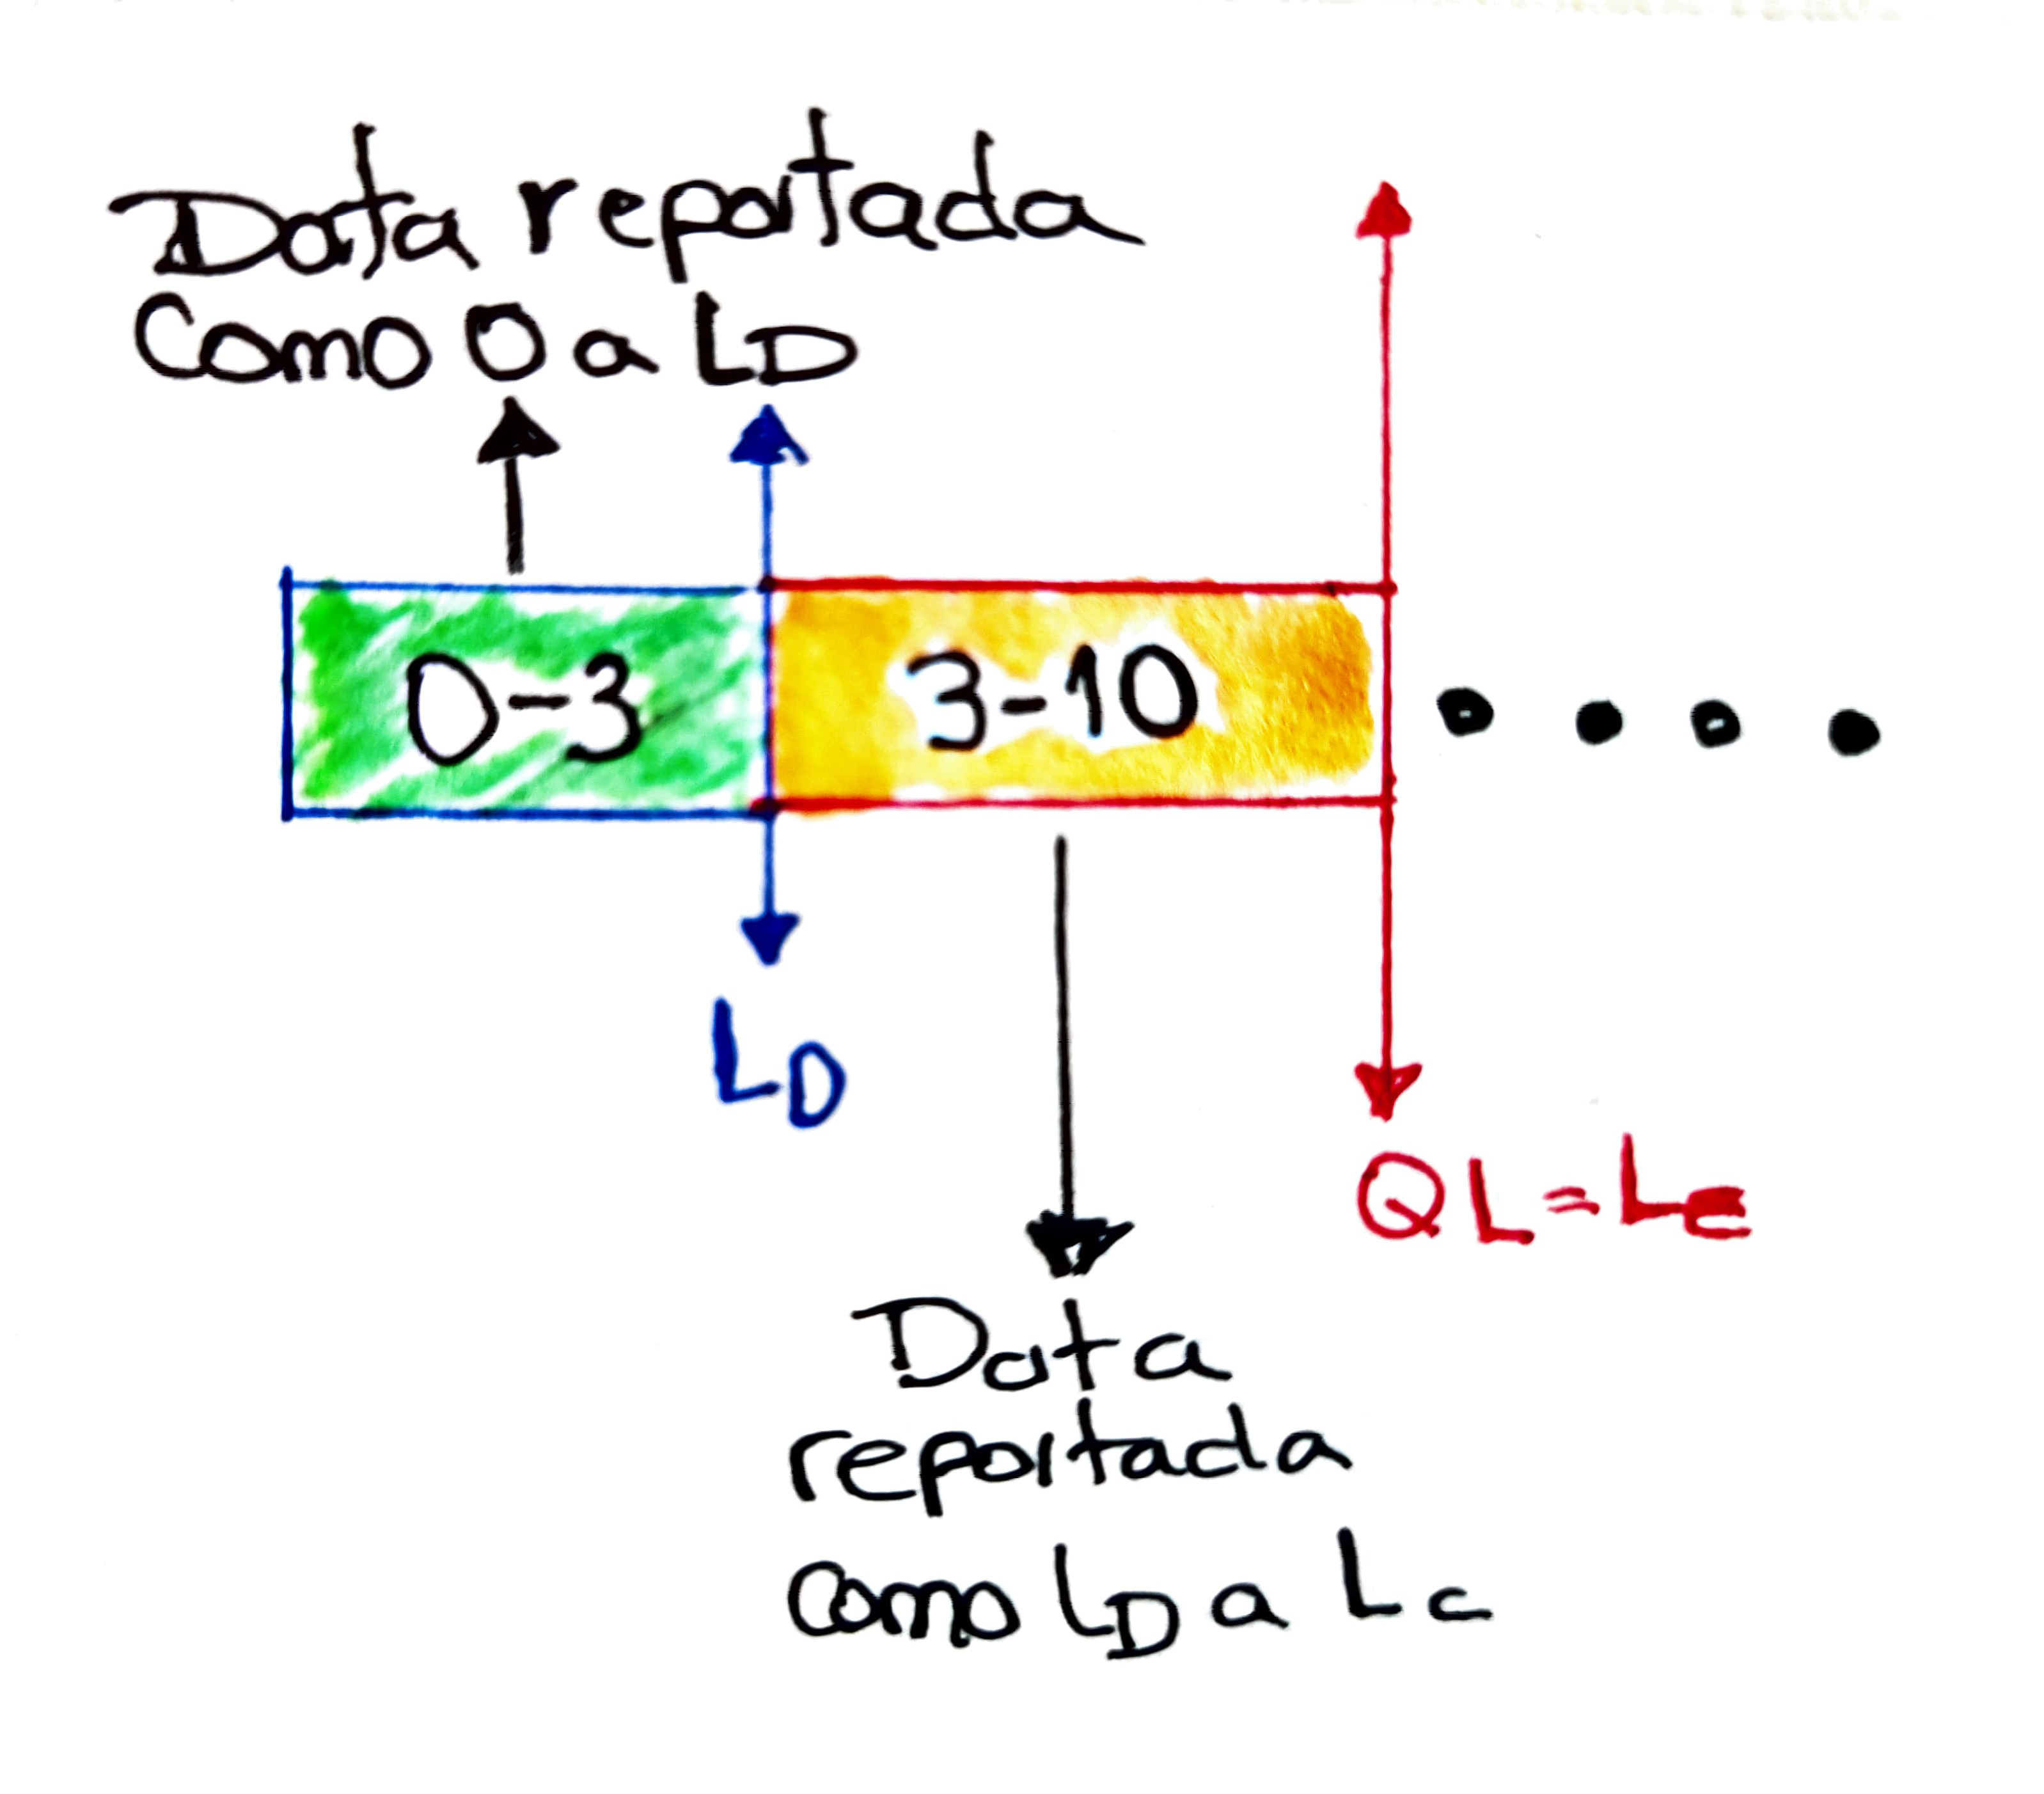 Data reportada
Como 0 a LD
0-3
3-10
LD
QL=LC
Data
reportada
como LD a LC